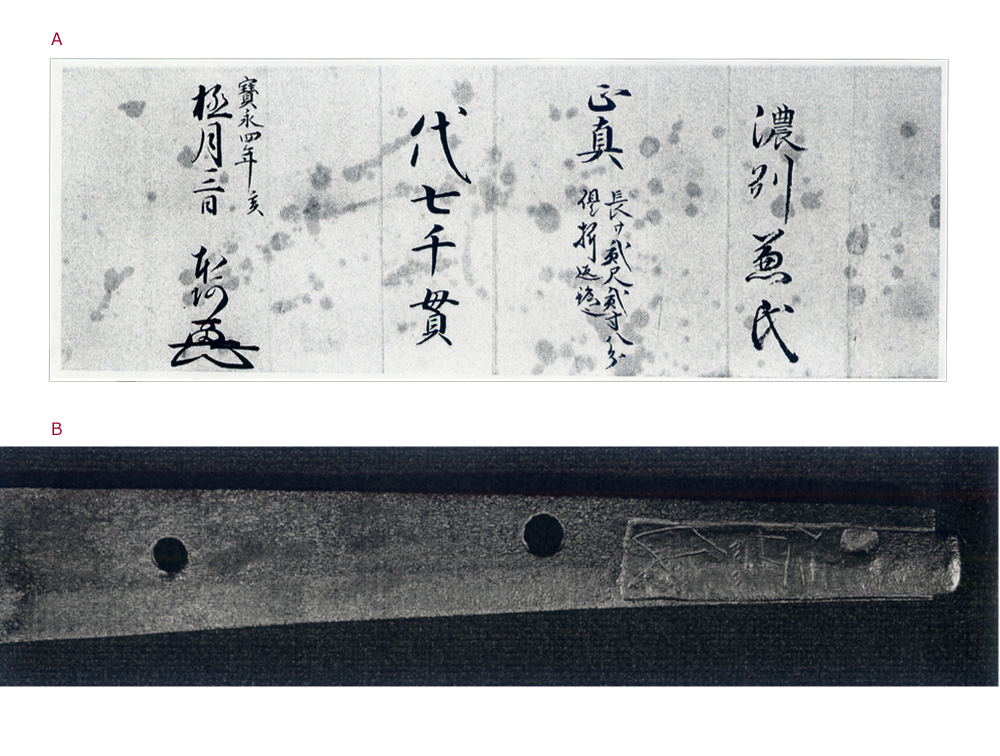 A
濃州兼氏
正真
長サ貳尺貳寸八分
折返銘
代七千貫
寶永四年亥
極月三日 本阿
B